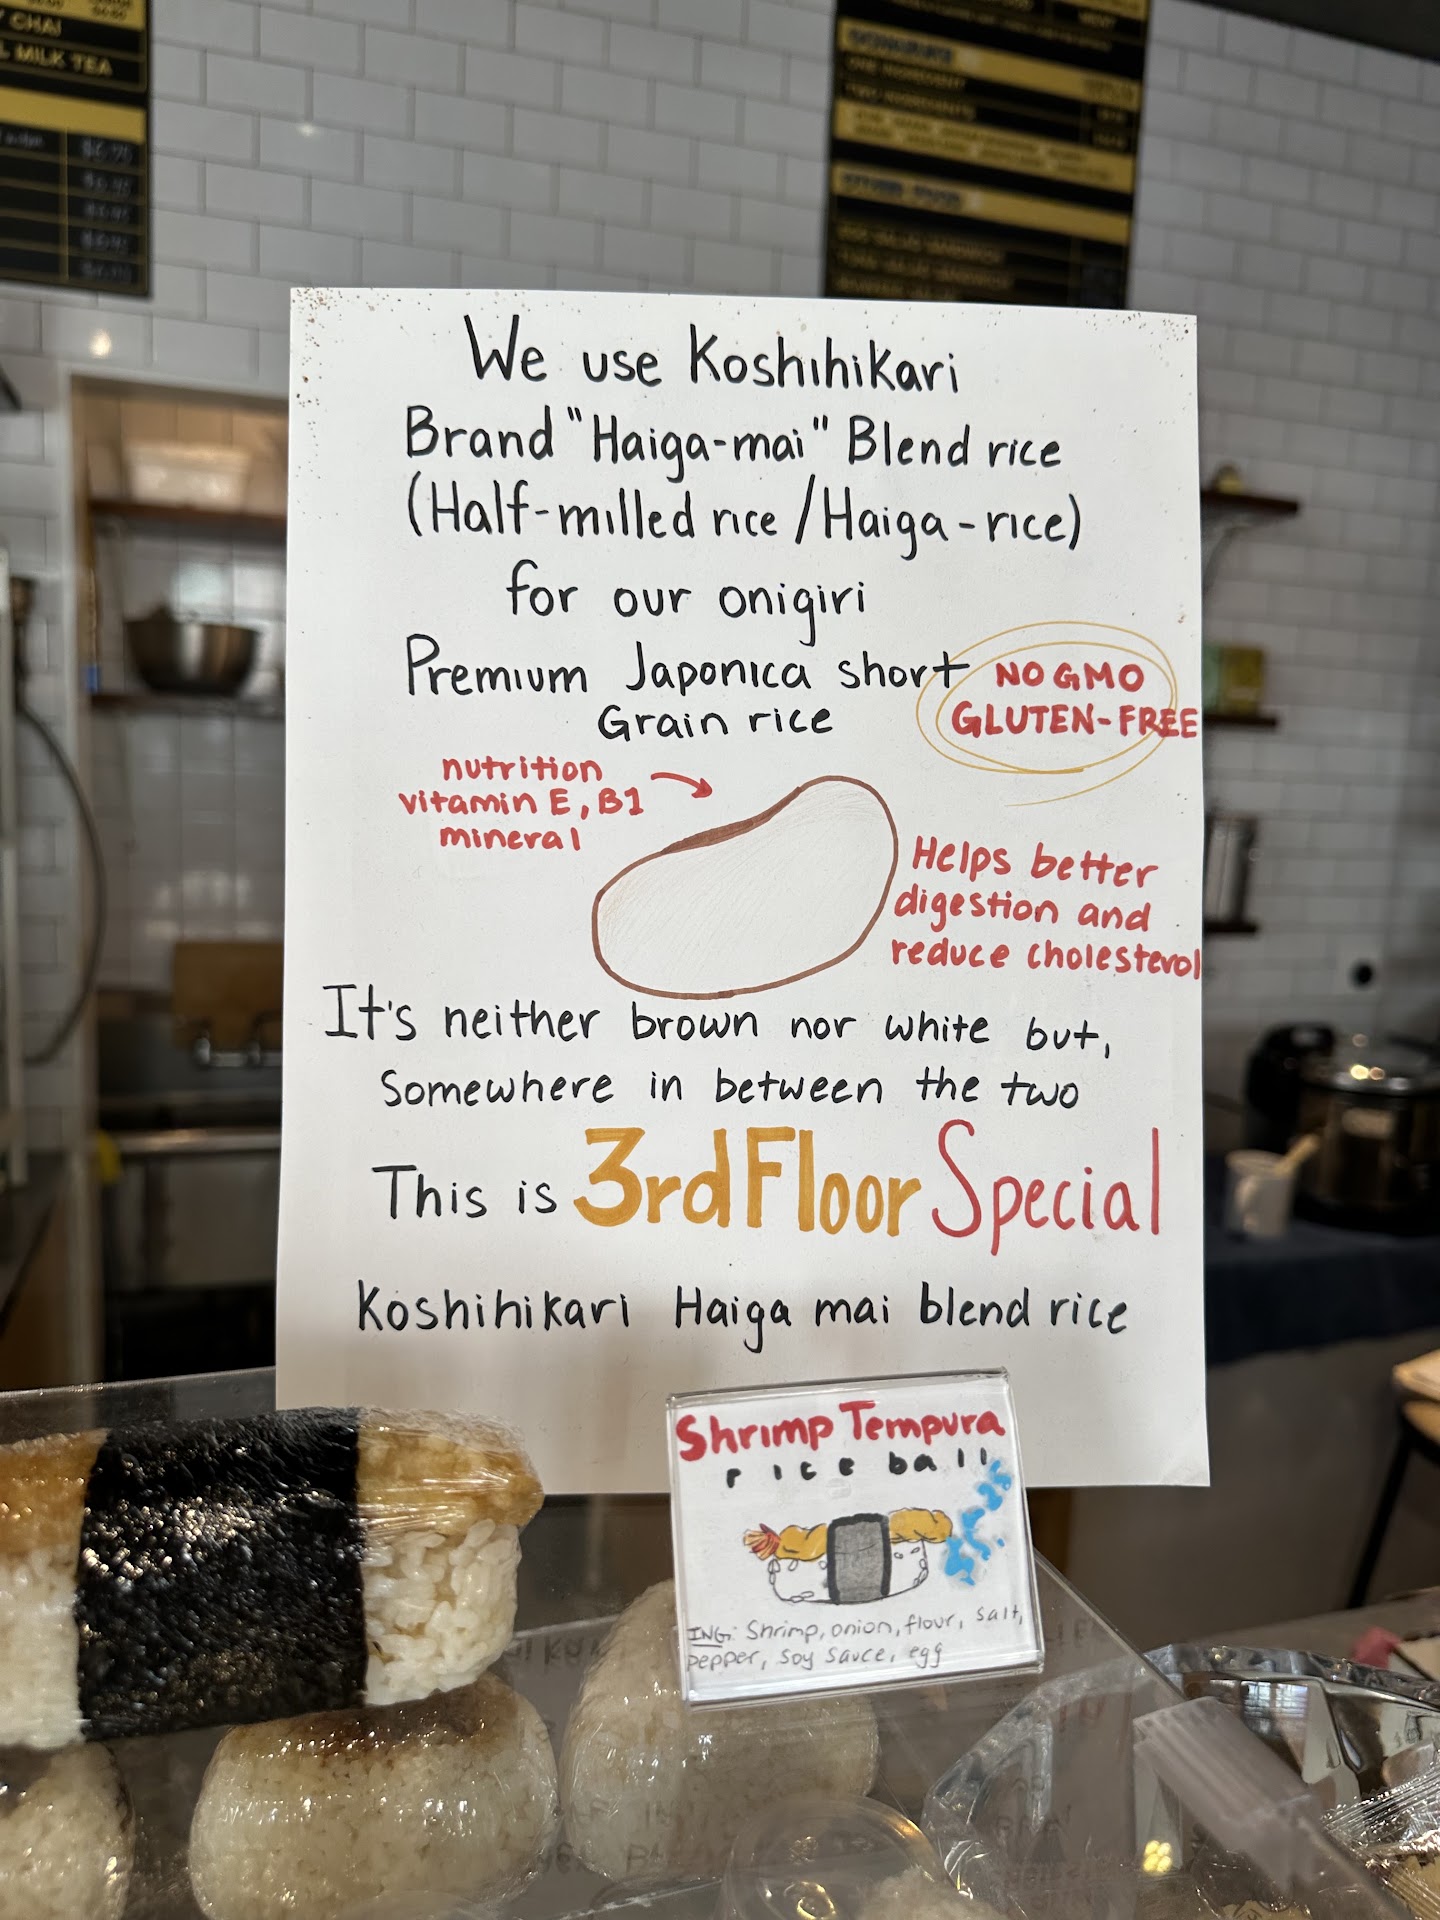 CHAI
MILK TEA
We use Koshihikari
Brand "Haiga-mai" Blend rice
(Half-milled rice / Haiga-rice)
for our onigiri
Premium Japonica short
Grain rice
NO GMO
GLUTEN-FREE
nutrition
vitamin E, B1
mineral
Helps better
digestion and
reduce cholesterol
It's neither brown nor white but,
Somewhere in between the two
This is 3rd Floor Special
Koshihikari Haiga mai blend rice
Shrimp Tempura
rice ball
ING: Shrimp, onion, flour, salt,
pepper, soy sauce, egg
ONE INGREDIENT
TWO INGREDIENTS